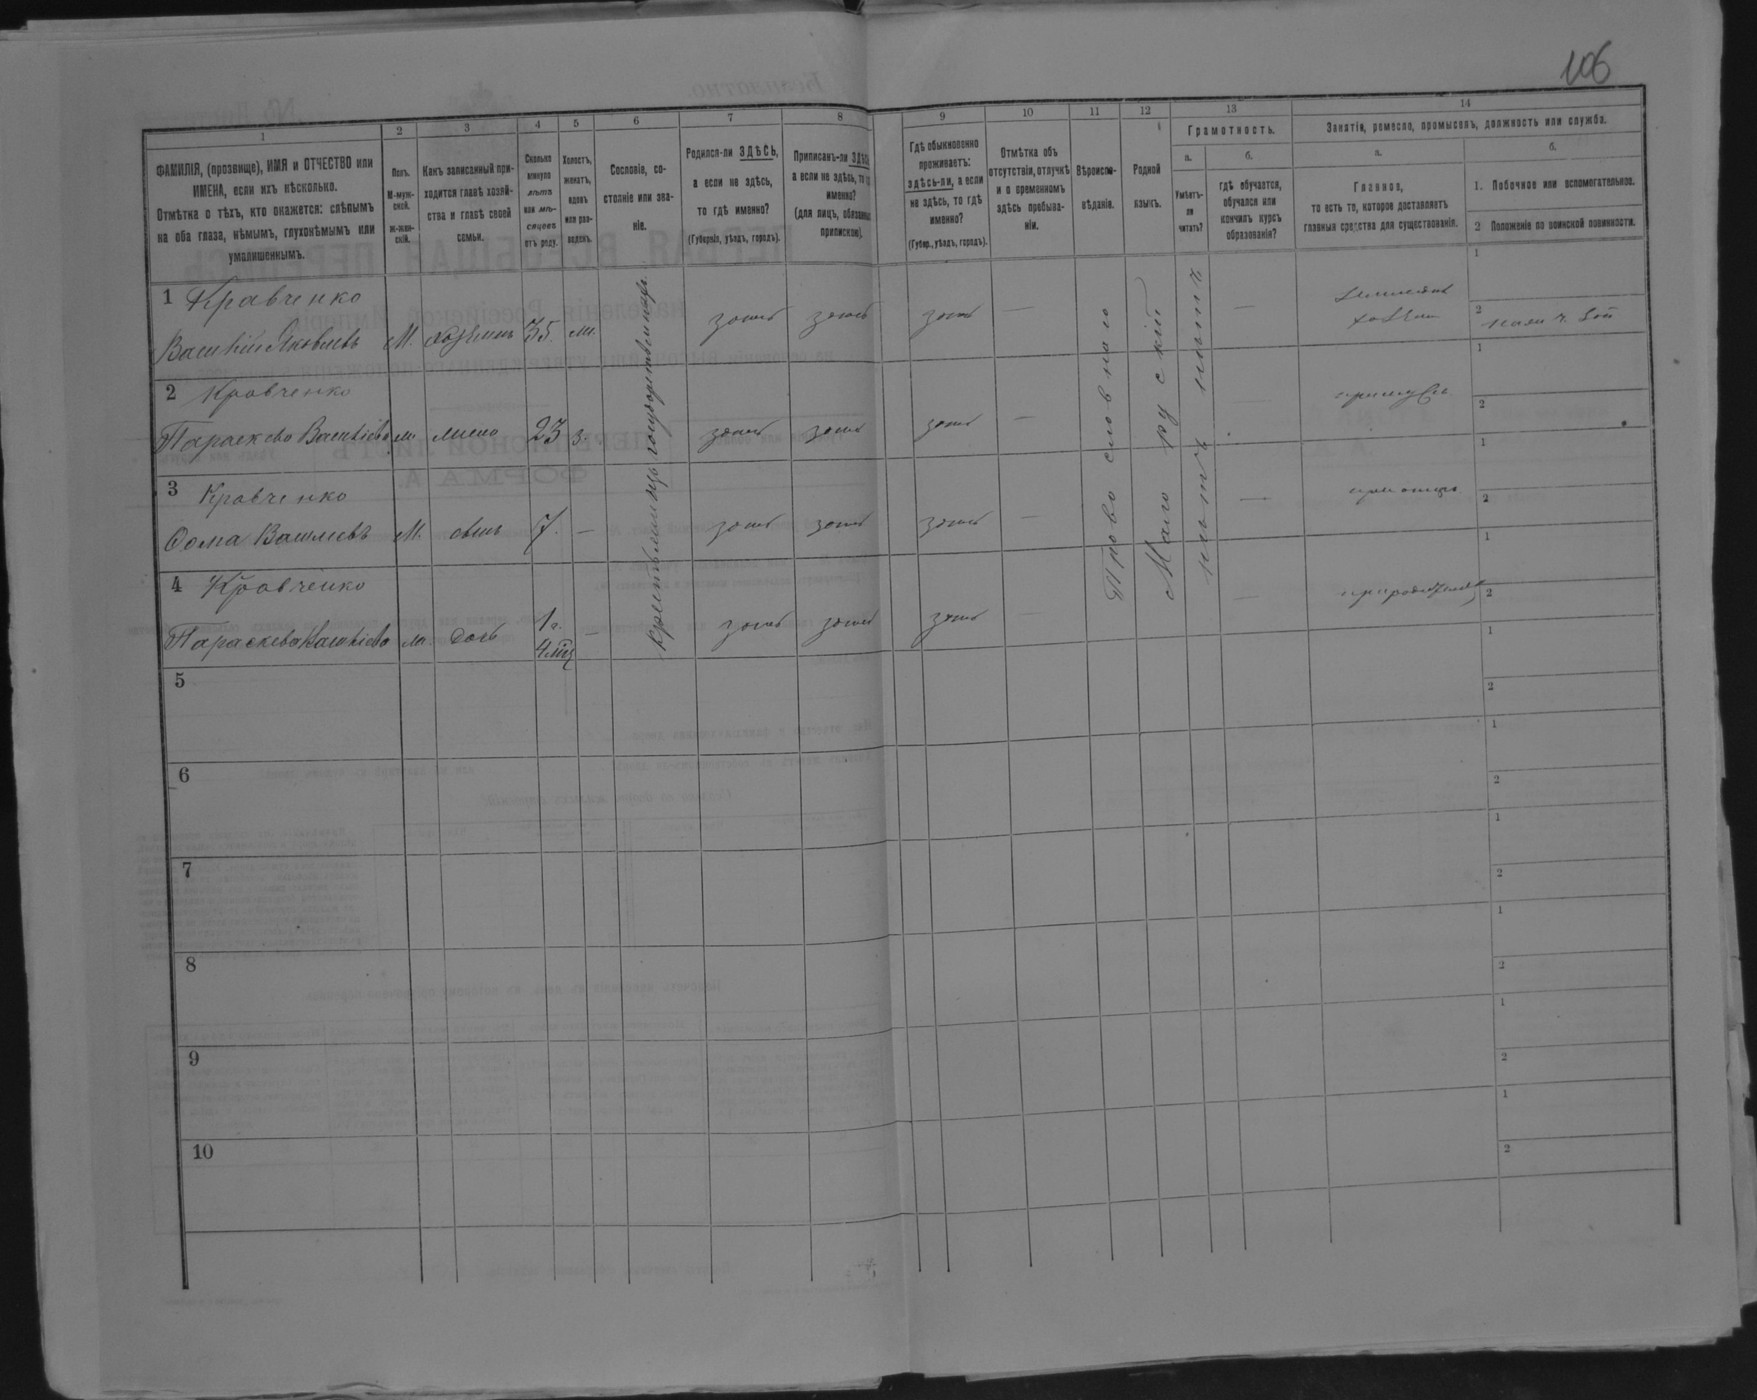 106
1
2
3
4
5
6
7
8
9
10
11
12
13
14
ФАМИЛІЯ, (прозвище), ИМЯ и ОТЧЕСТВО или
ИМЕНА, если ихъ нѣсколько.
Отмѣтка о тѣхъ, кто окажется: слѣпымъ
на оба глаза, нѣмымъ, глухонѣмымъ или
умалишеннымъ.
Полъ.
М-муж-
ской.
Ж-жен-
скій.
Какъ записанный при-
ходится главѣ хозяй-
ства и главѣ своей
семьи.
Сколько
минуло
лѣтъ
или мѣ-
сяцевъ
отъ роду.
Холостъ,
женатъ,
вдовъ
или раз-
веденъ.
Сословіе, со-
стояніе или зва-
ніе.
Родился-ли ЗДѢСЬ,
а если не здѣсь,
то гдѣ именно?
(Губернія, уѣздъ, городъ).
Приписанъ-ли ЗДѢСЬ,
а если не здѣсь, то гдѣ
именно?
(для лицъ, обязанныхъ
припискою).
Гдѣ обыкновенно
проживаетъ:
здѣсь-ли, а если
не здѣсь, то гдѣ
именно?
(Губер., уѣздъ, городъ).
Отмѣтка объ
отсутствіи, отлучкѣ
и о временномъ
здѣсь пребыва-
ніи.
Вѣроиспо-
вѣданіе.
Родной
языкъ.
Грамотность.
а.
б.
Умѣетъ-
ли
читать?
гдѣ обучается,
обучался или
кончилъ курсъ
образованія?
Занятіе, ремесло, промыселъ, должность или служба.
а.
б.
Главное,
то есть то, которое доставляетъ
главныя средства для существованія.
1. Побочное или вспомогательное.
2 Положеніе по воинской повинности.
1 Кравченко
Василій Яковлевъ М. хозяинъ 35. ж. здѣсь здѣсь здѣсь —
2 Кравченко
Параскева Васильева ж. жена 23 з. здѣсь здѣсь здѣсь — при мужѣ
3 Кравченко
Ѳома Васильевъ М. сынъ 7. — здѣсь здѣсь здѣсь — при отцѣ
4 Кравченко
Параскева Васильева ж. дочь 1 г. — здѣсь здѣсь здѣсь — при родителяхъ
Православное
Малорускій
нѣтъ
5
6
7
8
9
10